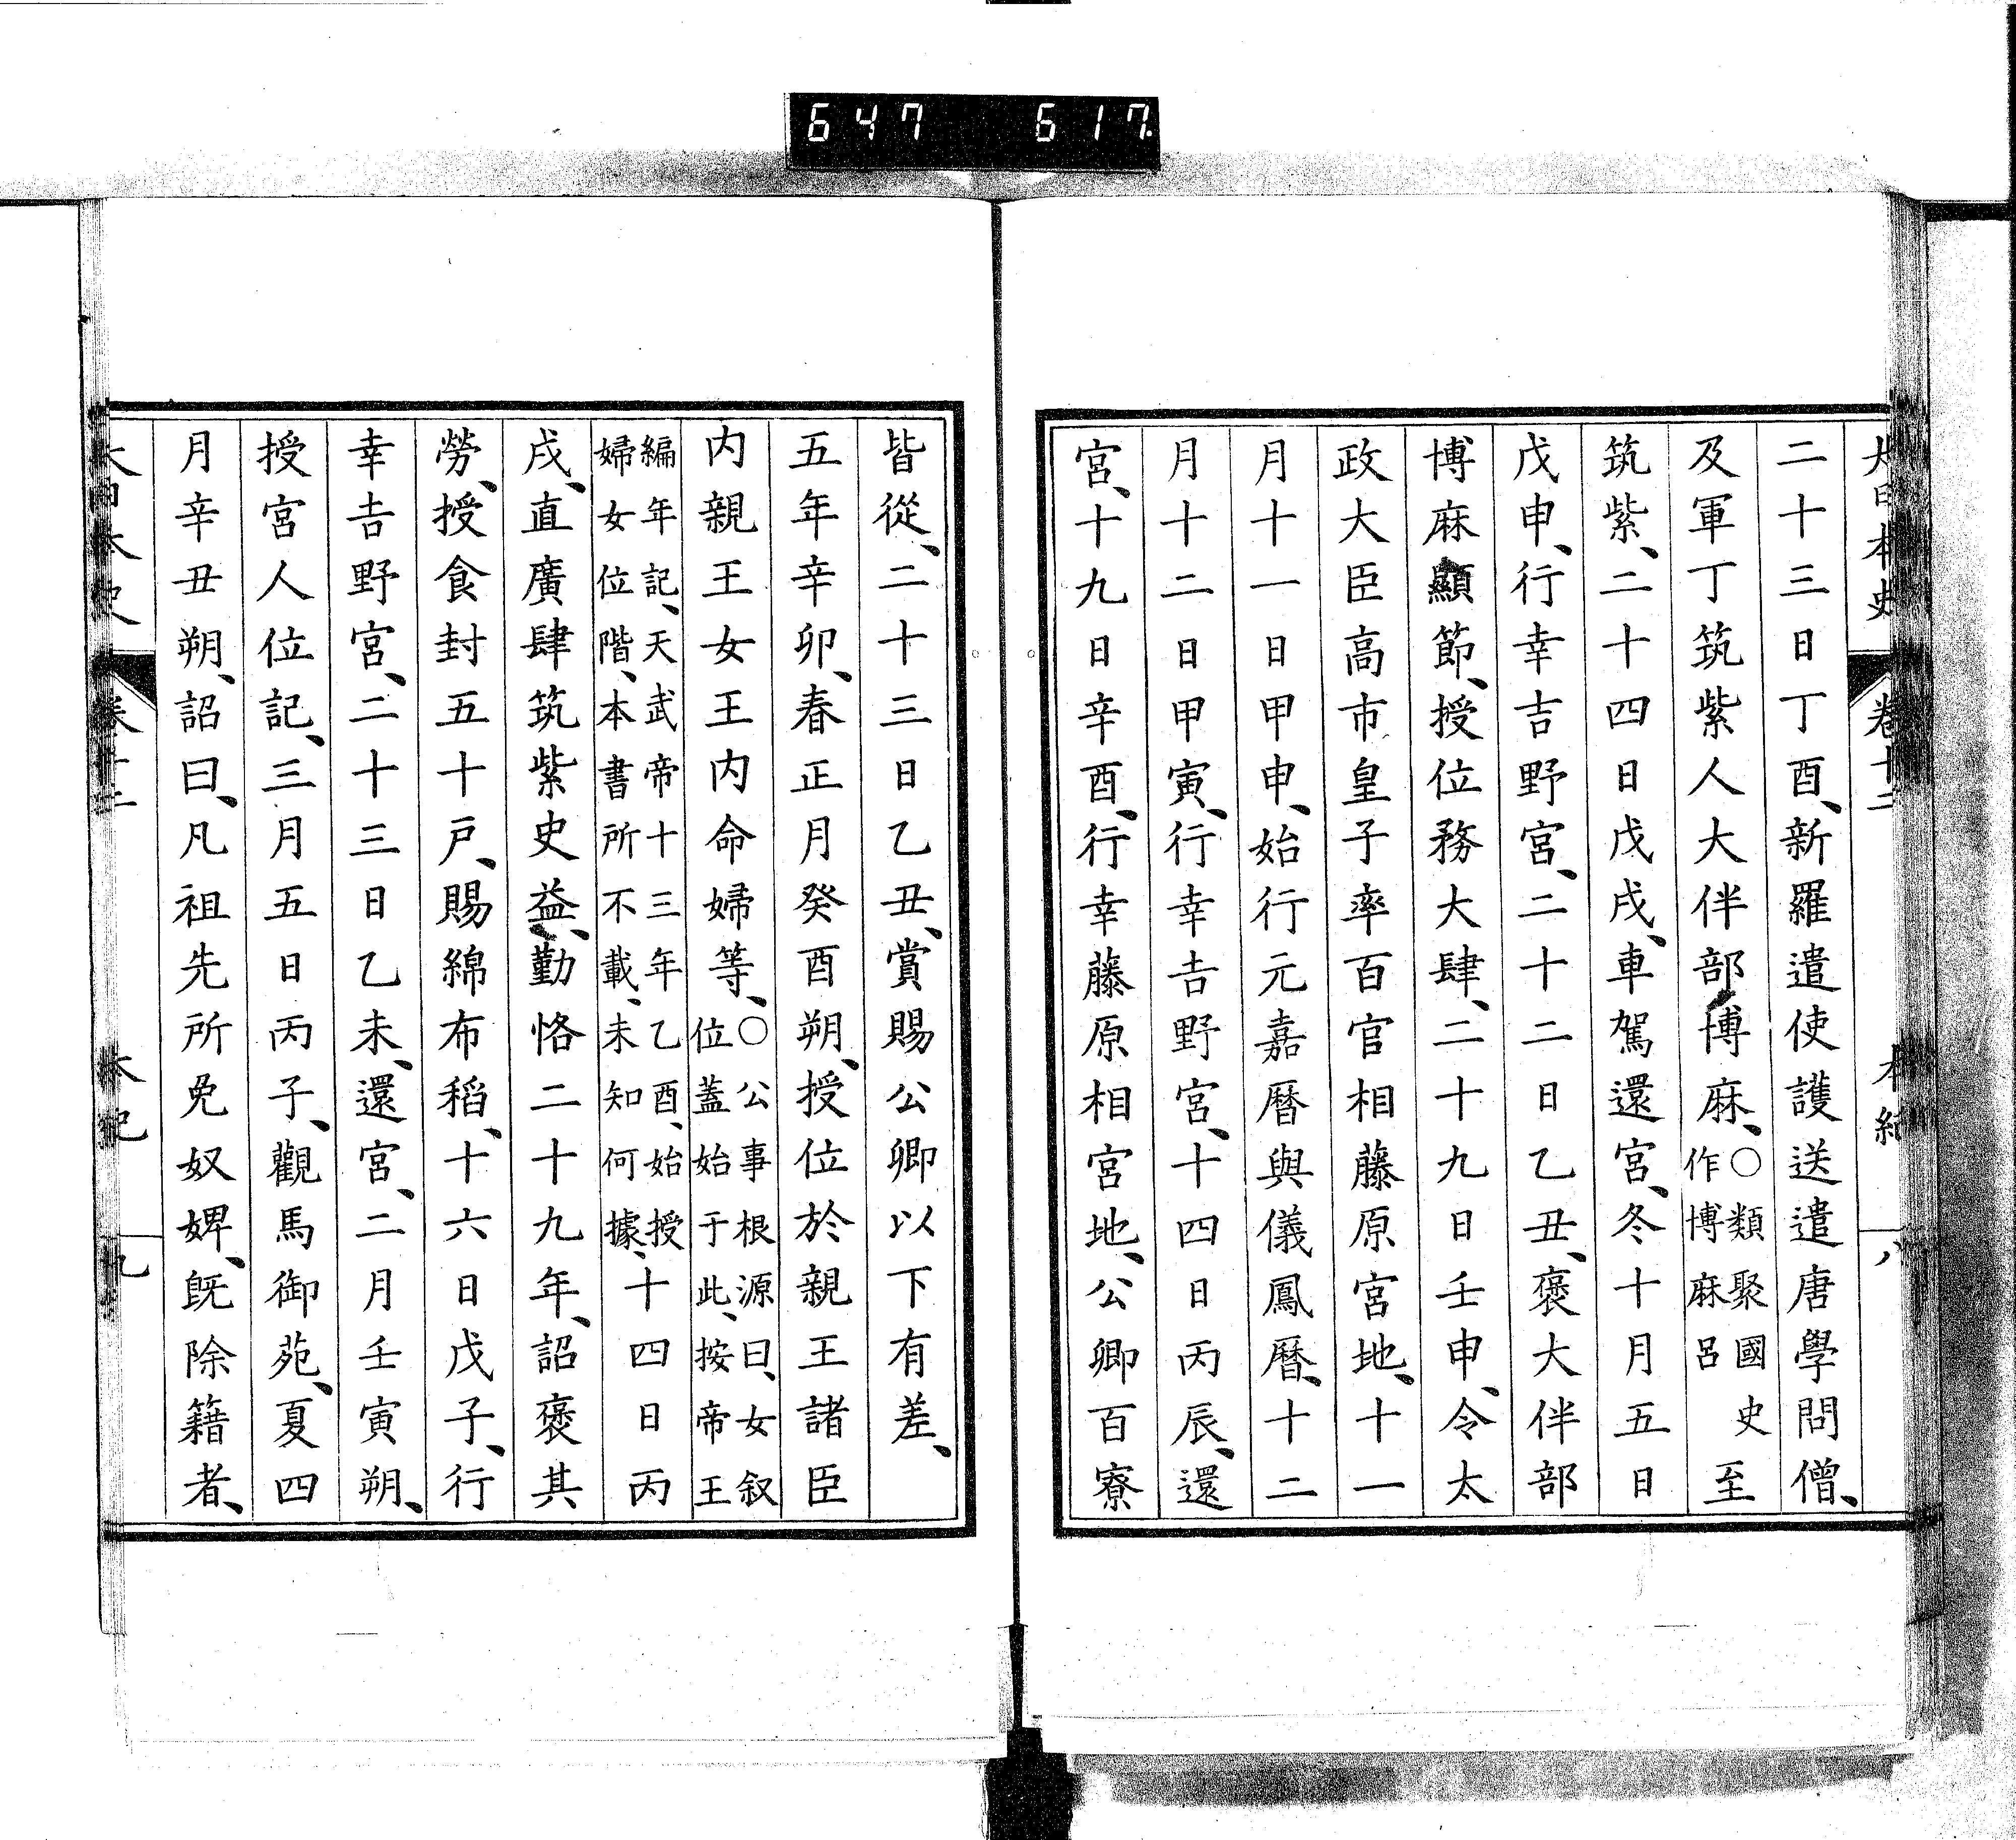 647 617.
大日本史 卷十二 本紀 八
二十三日丁酉、新羅遣使護送遣唐學問僧、
及軍丁筑紫人大伴部博麻、○類聚國史作博麻呂至
筑紫、二十四日戊戌、車駕還宮、冬十月五日
戊申、行幸吉野宮、二十二日乙丑、褒大伴部
博麻顯節、授位務大肆、二十九日壬申、令太
政大臣高市皇子率百官相藤原宮地、十一
月十一日甲申、始行元嘉曆與儀鳳曆、十二
月十二日甲寅、行幸吉野宮、十四日丙辰、還
宮、十九日辛酉、行幸藤原相宮地、公卿百寮
皆從、二十三日乙丑、賞賜公卿以下有差、
五年辛卯、春正月癸酉朔、授位於親王諸臣
内親王女王内命婦等、○公事根源曰、女叙位蓋始于此、按帝王
編年記、天武帝十三年乙酉、始授婦女位階、本書所不載、未知何據、十四日丙
戌、直廣肆筑紫史益、勤恪二十九年、詔褒其
勞、授食封五十戸、賜綿布稻、十六日戊子、行
幸吉野宮、二十三日乙未、還宮、二月壬寅朔、
授宮人位記、三月五日丙子、觀馬御苑、夏四
月辛丑朔、詔曰、凡祖先所免奴婢、既除籍者、
大日本史 卷十二 本紀 九